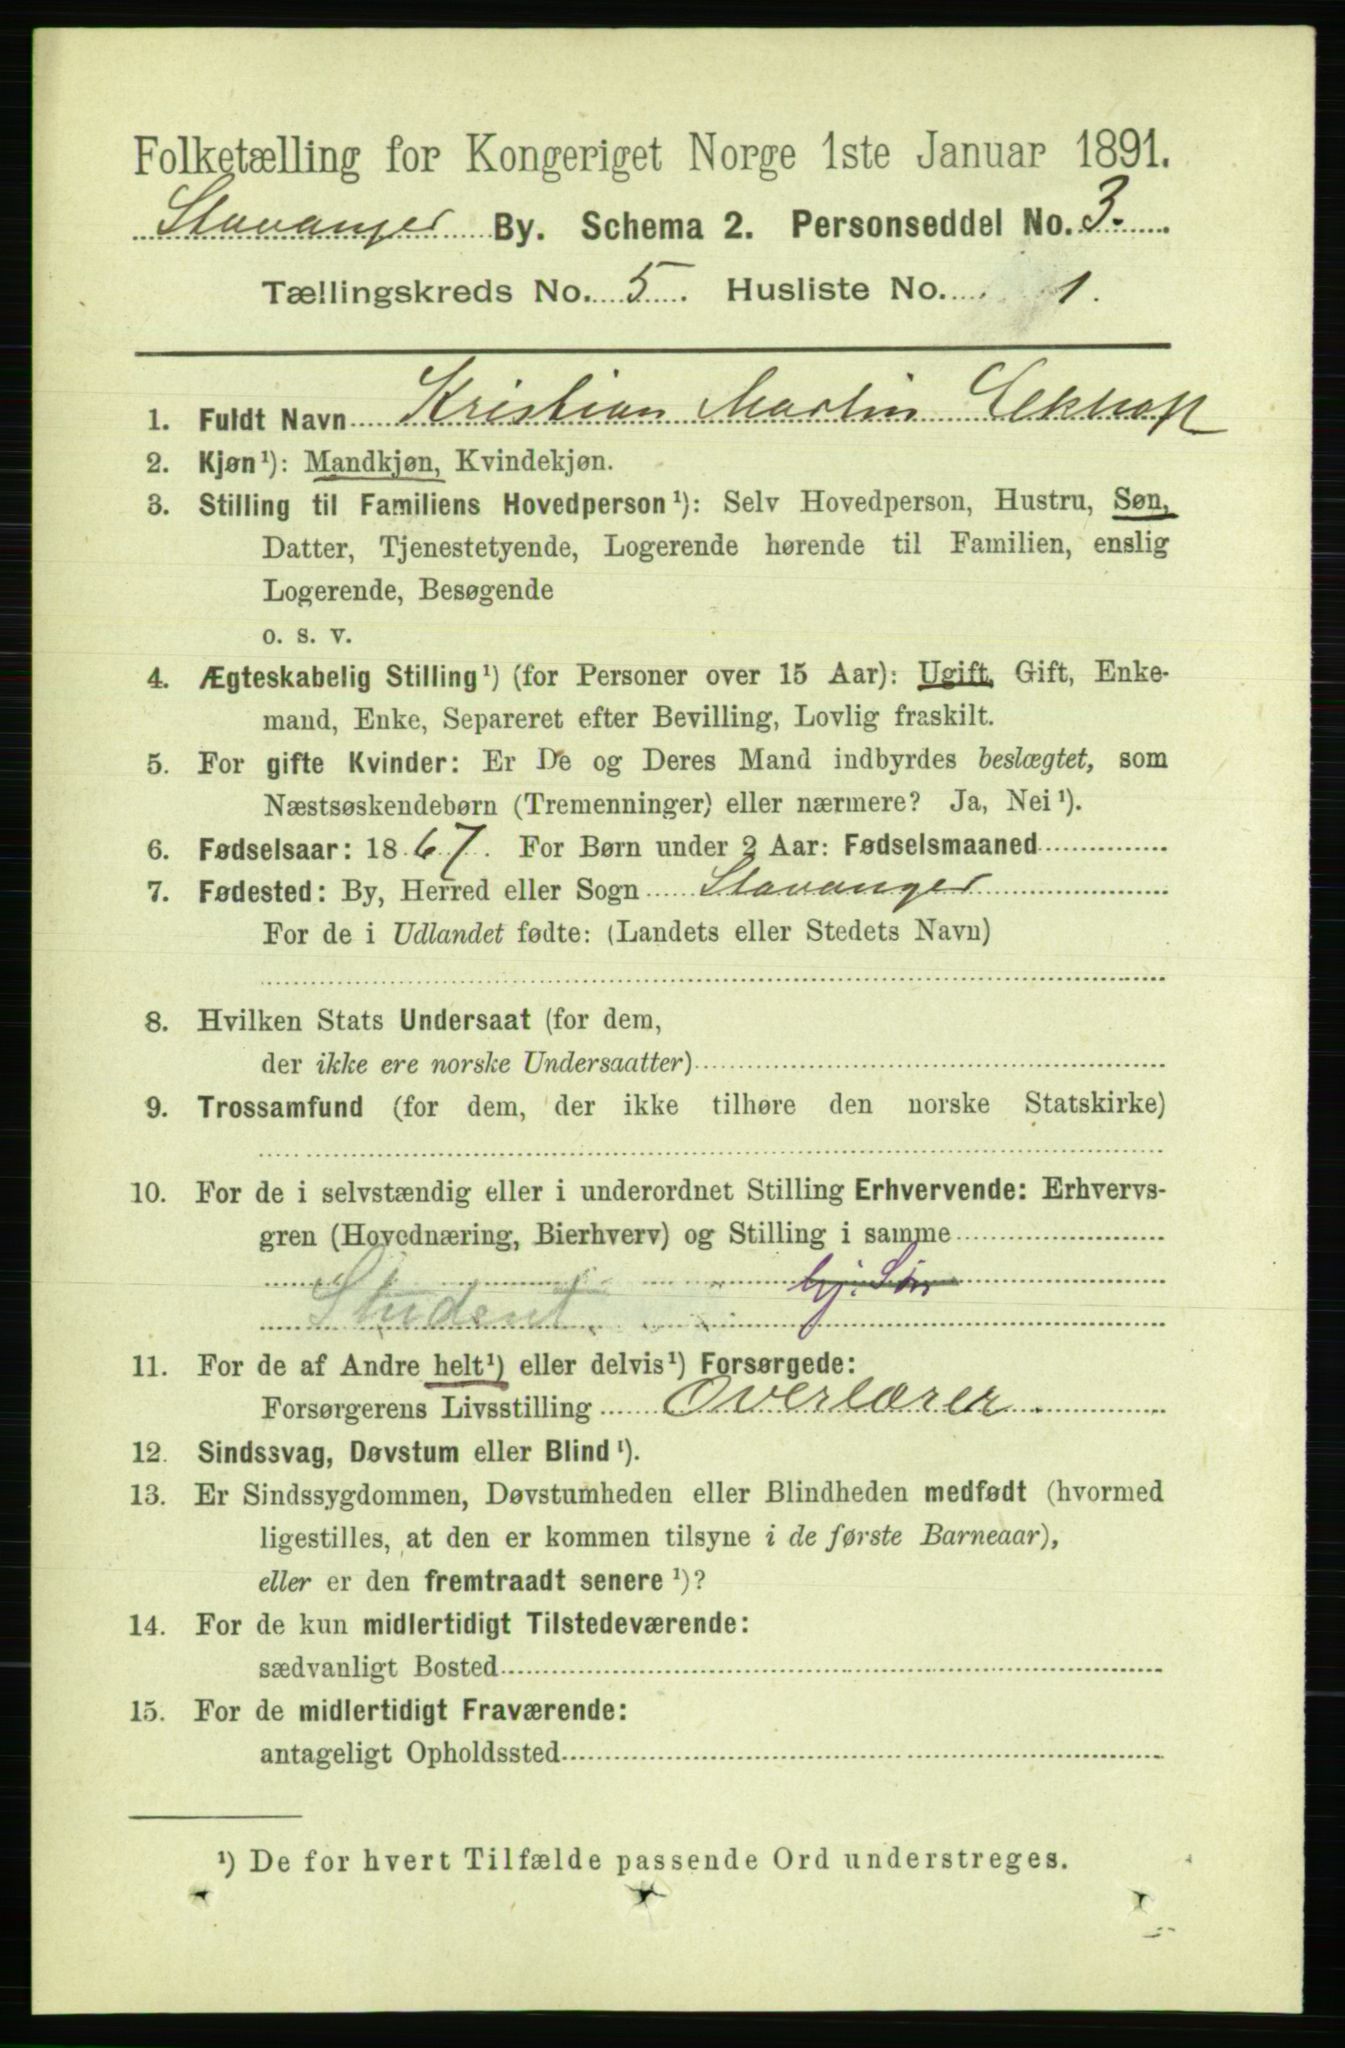 Folketælling for Kongeriget Norge 1ste Januar 1891.
Stavanger By. Schema 2. Personseddel No. 3.
Tællingskreds No. 5. Husliste No. 1.
1. Fuldt Navn Kristian Martin
2. Kjøn¹): Mandkjøn, Kvindekjøn.
3. Stilling til Familiens Hovedperson¹): Selv Hovedperson, Hustru, Søn,
Datter, Tjenestetyende, Logerende hørende til Familien, enslig
Logerende, Besøgende
o. s. v.
4. Ægteskabelig Stilling¹) (for Personer over 15 Aar): Ugift, Gift, Enke-
mand, Enke, Separeret efter Bevilling, Lovlig fraskilt.
5. For gifte Kvinder: Er De og Deres Mand indbyrdes beslægtet, som
Næstsøskendebørn (Tremenninger) eller nærmere? Ja, Nei¹).
6. Fødselsaar: 1867. For Børn under 2 Aar: Fødselsmaaned
7. Fødested: By, Herred eller Sogn Stavanger
For de i Udlandet fødte: (Landets eller Stedets Navn)
8. Hvilken Stats Undersaat (for dem,
der ikke ere norske Undersaatter)
9. Trossamfund (for dem, der ikke tilhøre den norske Statskirke)
10. For de i selvstændig eller i underordnet Stilling Erhvervende: Erhvervs-
gren (Hovednæring, Bierhverv) og Stilling i samme
hj. Søn
Student.
11. For de af Andre helt¹) eller delvis¹) Forsørgede:
Forsørgerens Livsstilling Overlærer.
12. Sindssvag, Døvstum eller Blind¹).
13. Er Sindssygdommen, Døvstumheden eller Blindheden medfødt (hvormed
ligestilles, at den er kommen tilsyne i de første Barneaar),
eller er den fremtraadt senere¹)?
14. For de kun midlertidigt Tilstedeværende:
sædvanligt Bosted
15. For de midlertidigt Fraværende:
antageligt Opholdssted
¹) De for hvert Tilfælde passende Ord understreges.